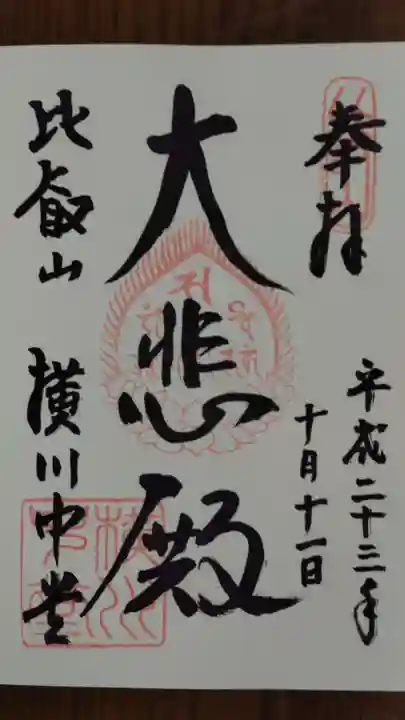 奉拝
平成二十三年
十月十一日
大悲殿
比叡山 横川中堂